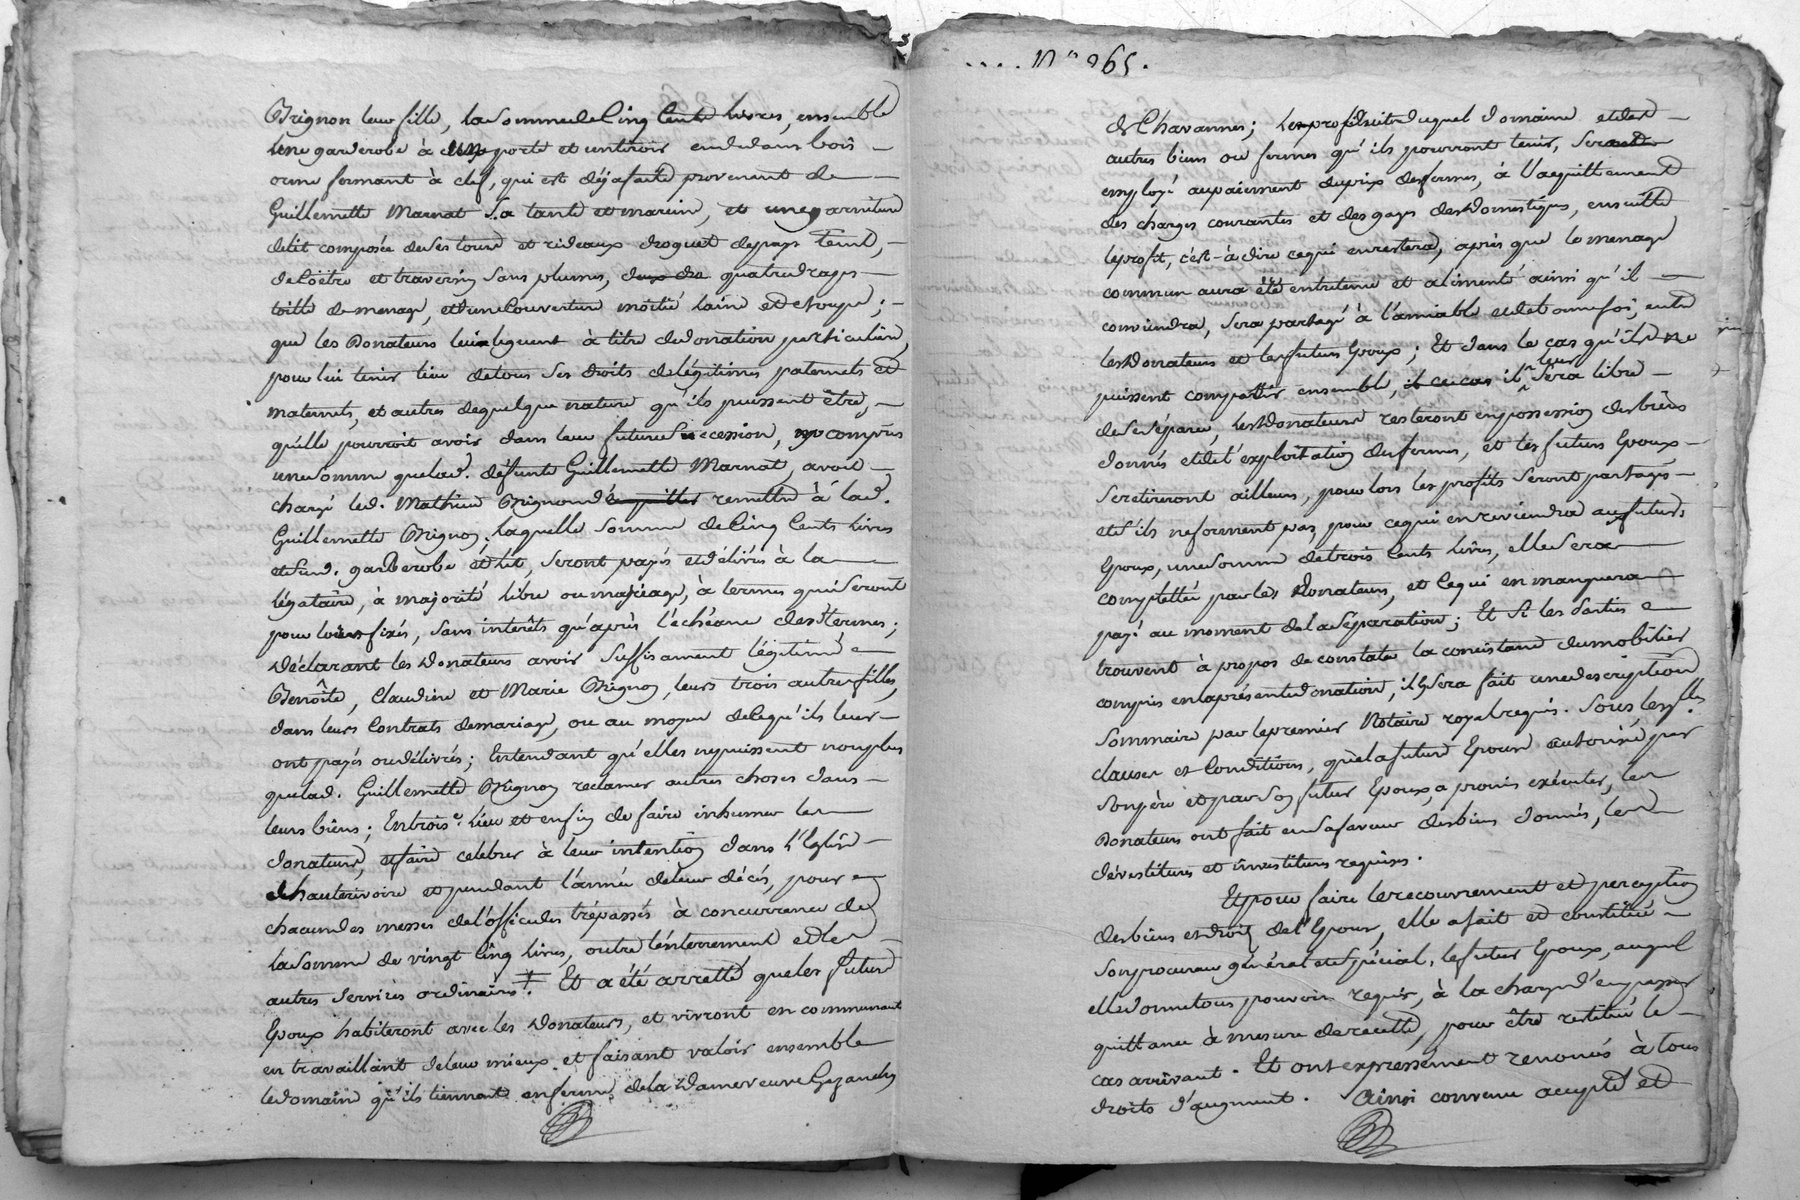 Brignon leur fille, la somme de Cinq Cents livres, ensemble
Une garderobe à une porte et un tiroir en dedans bois
orme fermant à clef, qui est déja faite provenent de
Guillemette Marnat Sa tante et mareine, et une garniture
de lit composée de ses tours et rideaux droguet de pays teint,
de Coëtre et traversin sans plumes, deux dra quatre draps
toille de menage, et d'une Couverture moitié laine et etoupe ;
que les Donateurs lui leguent à titre de donation particuliere,
pour lui tenir lieu de tous ses droits de légitimes paternels et
maternels, et autres de quelque nature qu'ils puissent être,
qu'elle pourroit avoir dans leur future Succession, y compris
une Somme que lad. défunte Guillemette Marnat, avoit
chargé led. Mathieu Brignon d'acquitter remettre à lad.
Guillemette Brignon ; laquelle Somme de Cinq Cents livres
et Susd. garderobe et lit, seront payés et délivrés à la
légataire, à majorité libre ou mariage, à termes qui Seront
pour lors fixés, Sans intérêts qu'après l'échéance des termes ;
Déclarant les Donateurs avoir Suffisament légitimé
Benoîte, Claudine et Marie Brignon, leurs trois autres filles,
dans leurs Contrats de mariage, ou au moyen de ce qu'ils leur
ont payés ou délivrés ; Entendant qu'elles ny puissent non plus
que lad. Guillemette Brignon reclamer autres choses dans
leurs biens ; En troise. lieu et enfin de faire inhumer les
donateurs, et faire celebrer à leur intention dans l'Eglise
d'hauterivoire et pendant l'année de leur décès, pour
chacun des messes de l'office des trépassés à concurrence de
la Somme de vingt Cinq livres, outre l'enterrement et les
autres Services ordinaires. ‡ Et a été arretté que les futurs
Epoux habiteront avec les Donateurs, et vivront en communauté
en travaillant de leur mieux et faisant valoir ensemble
le domaine qu'ils tiennent en ferme de la Dame veuve
.... No 265.
de Chavannes ; Les profits duquel domaine et des
autres biens ou fermes qu'ils pourront tenir, Seront
employé au paiement du prix des fermes, à l'acquittement
des charges courantes et des gages des Domestiques, ensuitte
le profit, c'est-à-dire ce qui en restera, après que le menage
commun aura été entretenu et alimenté ainsi qu'il
conviendra, Sera partagé à l'amiable et de bonne foi, entre
les Donateurs et les futurs Epoux ; Et dans le cas qu'ils ne
puissent compatir ensemble, il leur Sera libre
de Se séparer, les Donateurs resteront en possession des biens
donnés et de l'exploitation des fermes, et les futurs Epoux
Se retireront ailleurs, pour lors les profits Seront partagés
et S'ils ne forment pas, pour ce qui en reviendra aux futurs
Epoux, une Somme de trois Cents livres, elle Sera
complettée par les Donateurs, et Ce qui en manquera
payé au moment de la Séparation ; Et Si les Parties
trouvent à propos de constater la consistance du mobilier
compris en la présente donation, il y Sera fait une description
Sommaire par le premier Notaire royal requis. Sous lesqlles
clauses et Conditions, que la future Epouse autorisée par
Son père et par Son futur Epoux, a promis exécuter, les
Donateurs ont fait en Sa faveur des biens donnés, les
dévestitures et investitures requises.
Et pour faire le recouvrement et perception
des biens et droits de l'Epouse, elle a fait et constitué
Son procureur général et Spécial, le futur Epoux, auquel
elle donne tous pouvoirs requis, à la charge d'en passer
quittance à mesure de recette, pour être restitué le
cas arrivant. Et ont expressement renoncés à tous
droits d'augment. Ainsi convenu accepté et